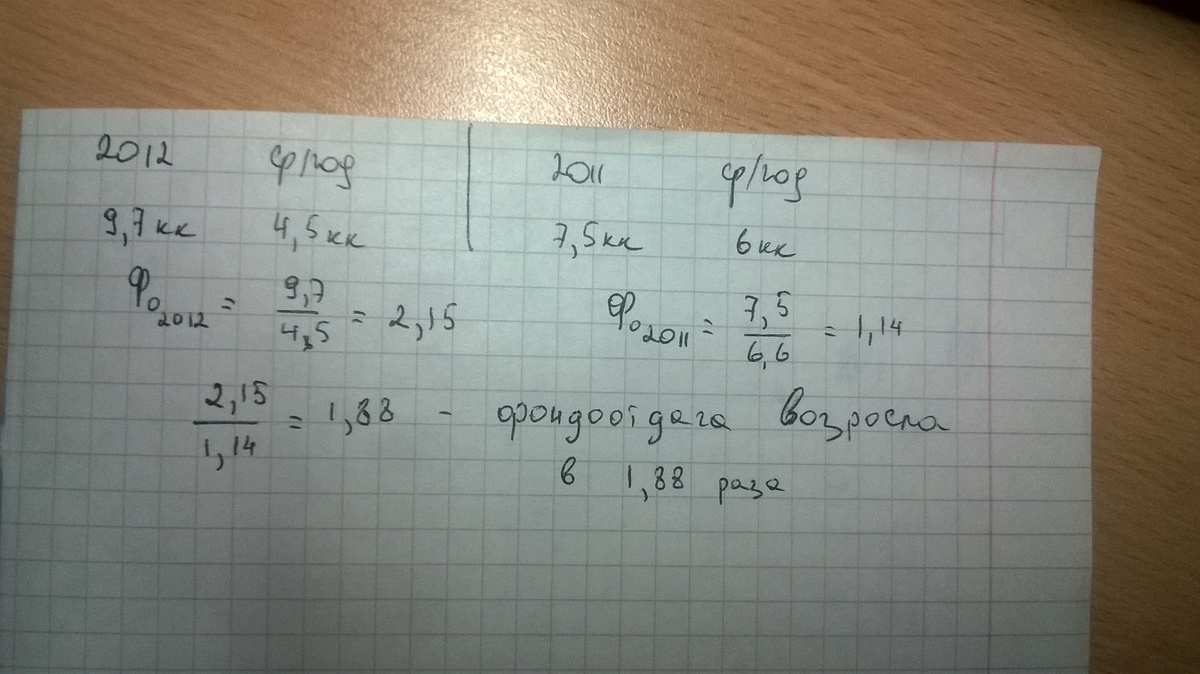 2012 ср/год 2011 ср/год
9,7 кк 4,5 кк 7,5 кк 6 кк
Фо2012 = 9,7/4,5 = 2,15 Фо2011 = 7,5/6,6 = 1,14
2,15/1,14 = 1,88 - фондоотдача возросла
в 1,88 раза